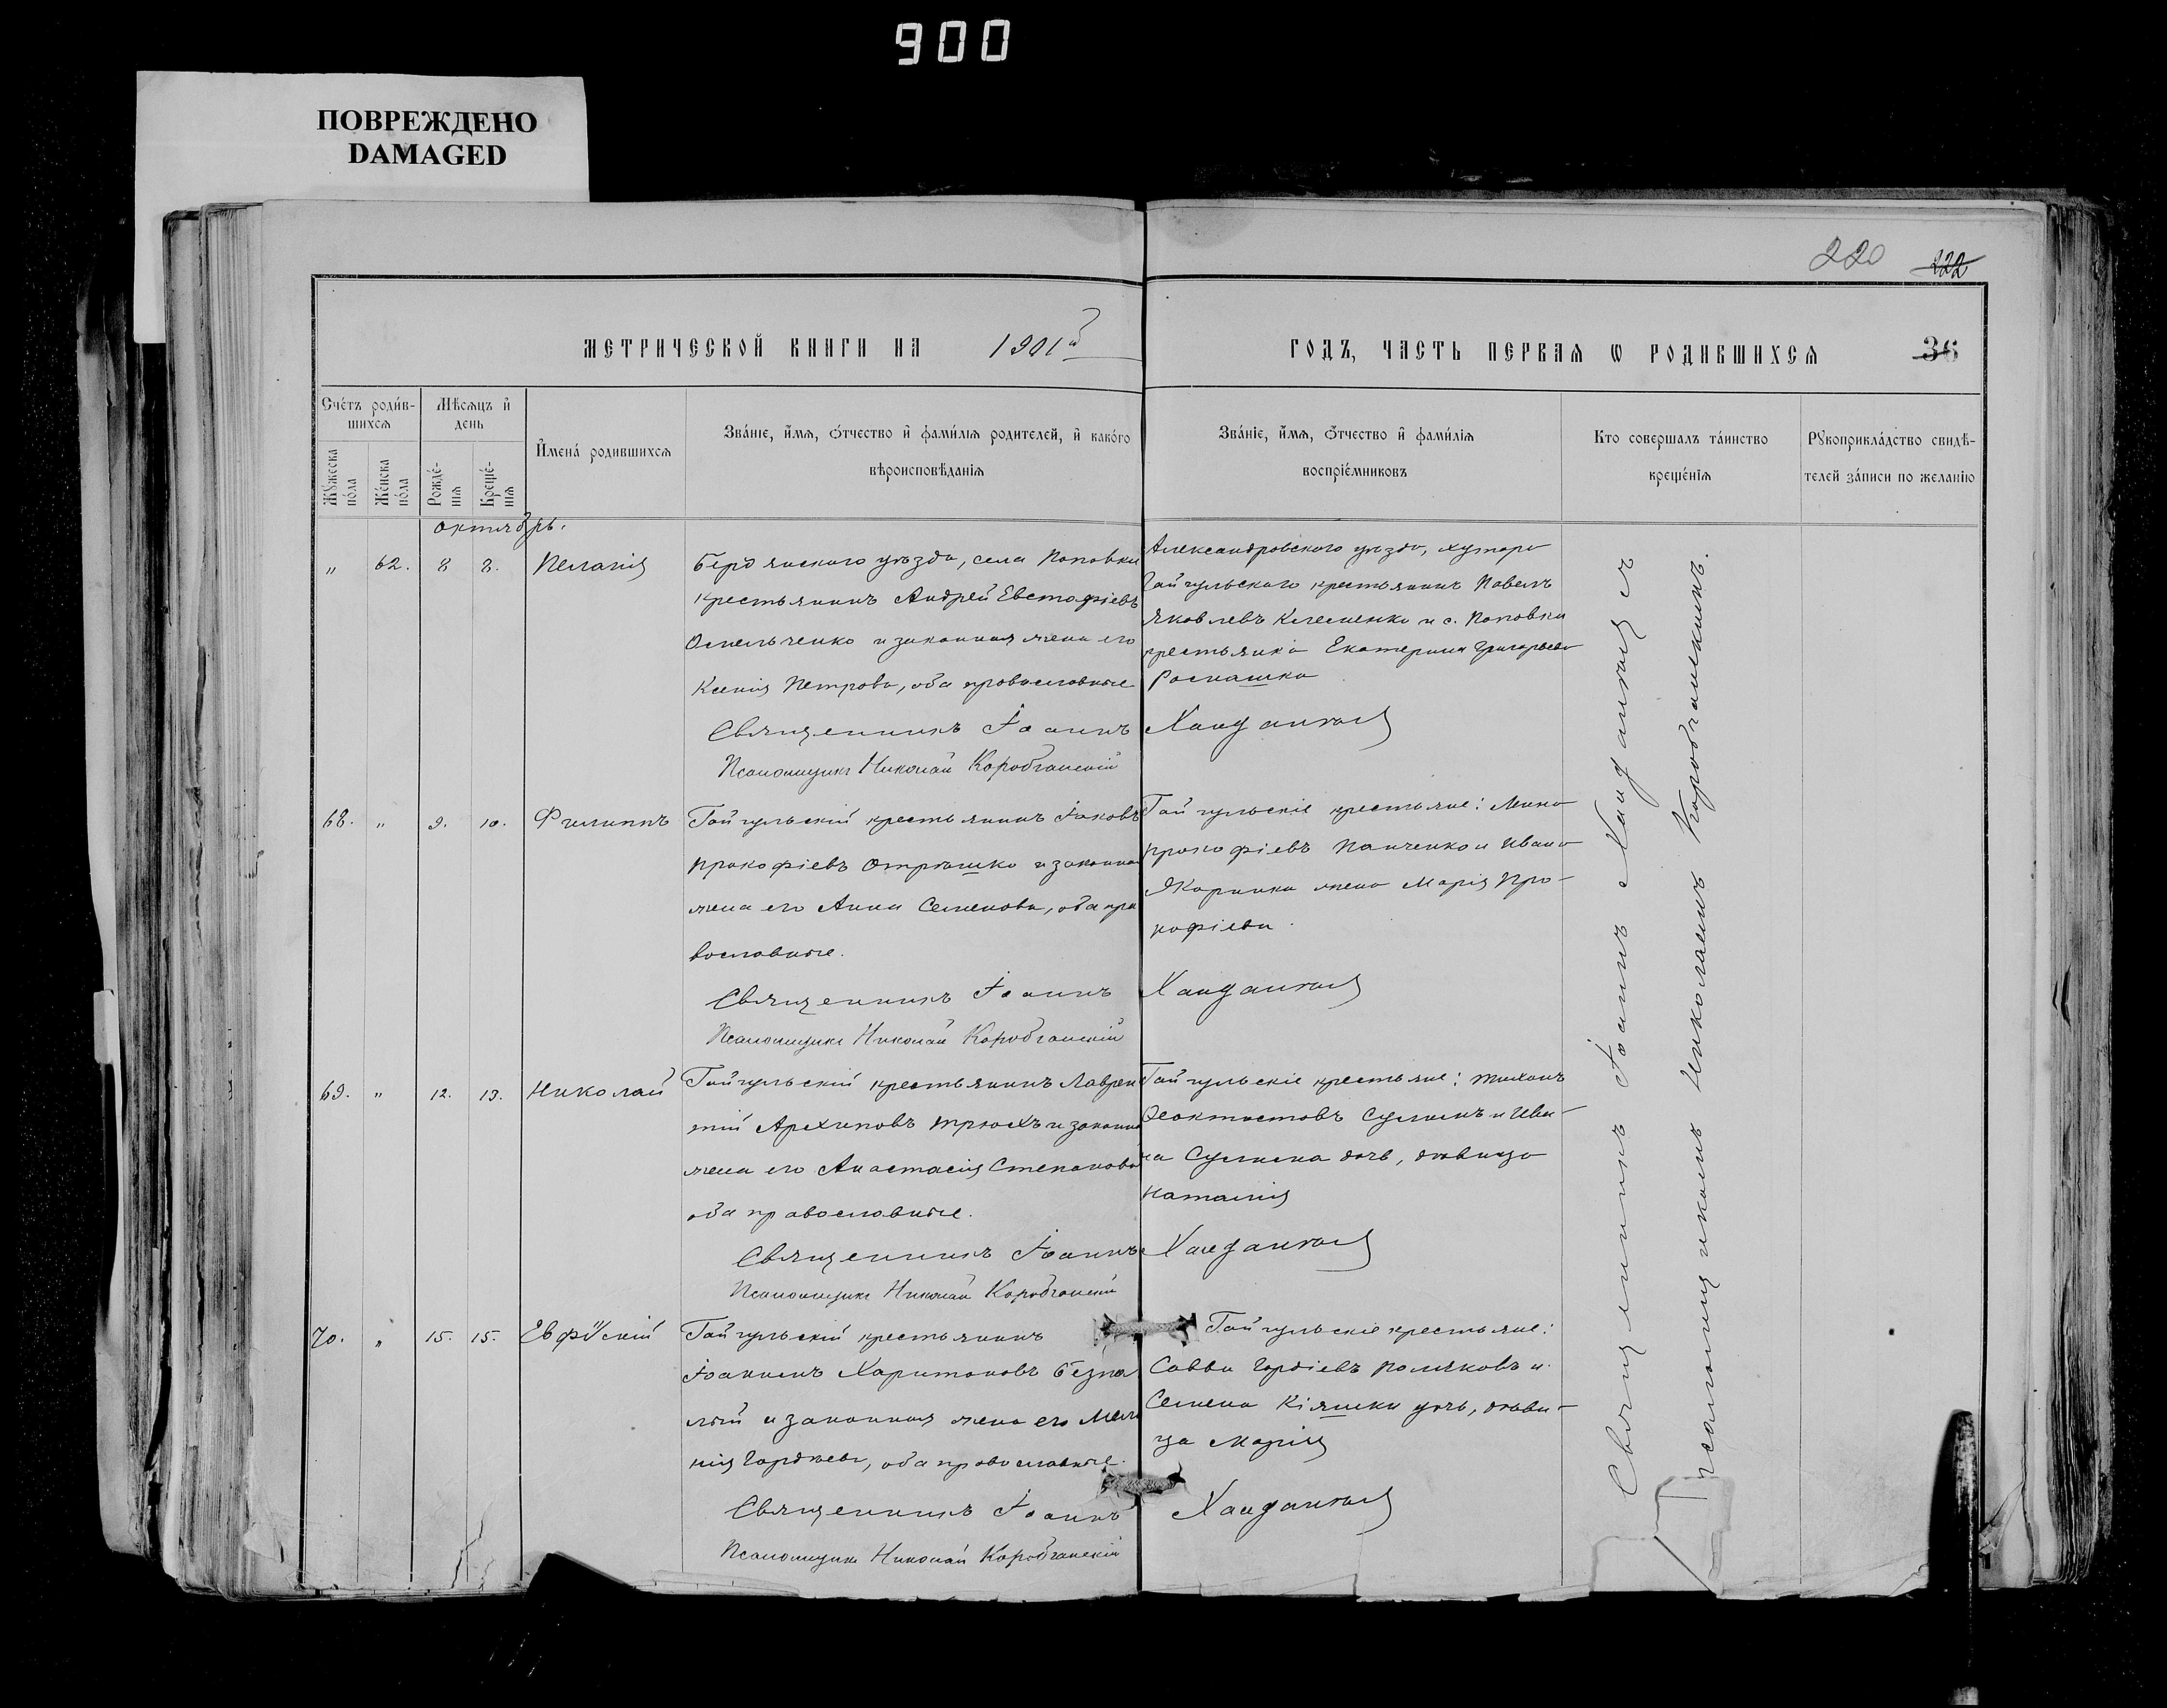 900
ПОВРЕЖДЕНО
DAMAGED
220 222
МЕТРИЧЕСКОЙ КНИГИ НА 1901й
ГОДЪ, ЧАСТЬ ПЕРВАЯ Ѡ РОДИВШИХСЯ 36
Счетъ родившихся
Мѣсяцъ и день
Имена родившихся
Званіе, имя, отчество и фамилія родителей, и какого
вѣроисповѣданія
Званіе, имя, отчество и фамилія
воспріемниковъ
Кто совершалъ таинство
крещенія
Рукоприкладство свидѣ-
телей записи по желанію
Мужеска пола
Женска пола
Рожденія
Крещенія
октябрь.
„ 62. 8 8. Пелагія
Бердянскаго уѣзда, села Поповки
крестьянинъ Андрей Евстафіевъ
Омельченко и законная жена его
Ксенія Петрова, оба православные
Александровскаго уѣзда, хутора
Гайчульскаго крестьянинъ Павелъ
Яковлевъ Клеменко и с. Поповки
крестьянка Екатерина Григорьева
Роспашка
Священникъ Іоаннъ
Псаломщикъ Николай
68. „ 9. 10. Филиппъ
Гайчульскій крестьянинъ Іаковъ
Прокофіевъ Отрѣшко и законная
жена его Анна Семенова, оба пра
вославные.
Гайчульскіе крестьяне: Мина
Прокофіевъ Панченко и Ивана
жена Марія Про-
кофіева.
Священникъ Іоаннъ
Псаломщикъ Николай
69. „ 12. 13. Николай
Гайчульскій крестьянинъ Лаврен
тій Архиповъ Трюхъ и законна
жена его Анастасія Степанова
оба православные.
Гайчульскіе крестьяне: Тихонъ
Ѳеоктистовъ и Ива-
на дочь, дѣвица
Наталія
Священникъ Іоаннъ
Псаломщикъ Николай
70. „ 15. 15. Евфѵмій
Гайчульскій крестьянинъ
Іоаннъ Харитоновъ Безпа
лый и законная жена его Мела
нія Гордѣева, оба православные.
Гайчульскіе крестьяне:
Савва Гордіевъ Поляковъ и
Семена Кіяшки дочь, дѣви-
ца Марія
Священникъ Іоаннъ
Псаломщикъ Николай
Священникъ Іоаннъ съ
псаломщикомъ Николаемъ